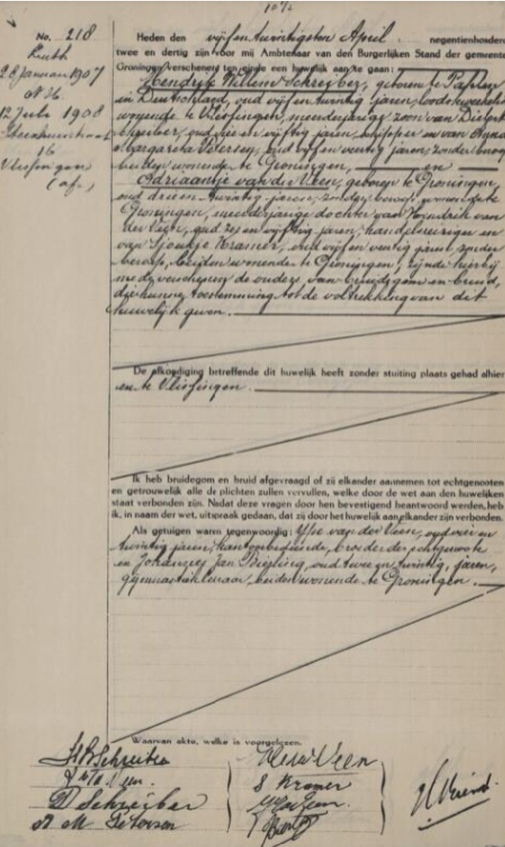 No. 218
Heden den vijfentwintigsten April negentienhonderd
twee en dertig zijn voor mij Ambtenaar van den Burgerlijken Stand der gemeente
Groningen verschenen ten einde een huwelijk aan te gaan:
28 Januari 1907
12 Juli 1908
16
Vlissingen
(af.)
Hendrik Willem Schreiber, geboren te
in Deutschland, oud vijfentwintig jaren,
wonende te Vlissingen, meerderjarige zoon van Diderk
Schreiber, oud drie en vijftig jaren, schipper en van Anna
Margaretha Petersen, oud vijf en veertig jaren, zonder beroep
beiden wonende te Groningen, en
Adriaantje van der Veen, geboren te Groningen,
oud drie en twintig jaren, zonder beroep, wonende te
Groningen, meerderjarige dochter van Hendrik van
der Veen, oud zes en vijftig jaren, handelsreiziger en
van Sjoukje Kramer, oud vijf en veertig jaren zonder
beroep, beiden wonende te Groningen, zijnde hierbij
mede verschenen de ouders van bruidegom en bruid,
die hunne toestemming tot de voltrekking van dit
huwelijk geven.
De afkondiging betreffende dit huwelijk heeft zonder stuiting plaats gehad alhier
en te Vlissingen.
Ik heb bruidegom en bruid afgevraagd of zij elkander aannemen tot echtgenooten
en getrouwelijk alle de plichten zullen vervullen, welke door de wet aan den huwelijken
staat verbonden zijn. Nadat deze vragen door hen bevestigend beantwoord werden, heb
ik, in naam der wet, uitspraak gedaan, dat zij door het huwelijk aan elkander zijn verbonden.
Als getuigen waren tegenwoordig: van der Veen, oud vier en
twintig jaren, kantoorbediende, broeder der echtgenoote
en Johannes Jan Biesling, oud twee en twintig jaren,
gymnastiekleraar, beiden wonende te Groningen.
Waarvan akte, welke is voorgelezen.
H W Schreiber
D Schreiber
A M Petersen
S Kramer